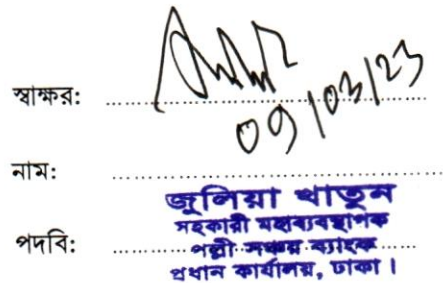 স্বাক্ষর: ........................
09/03/23
নাম: ........................
জুলিয়া খাতুন
সহকারী মহাব্যবস্থাপক
পদবি: ........................
পল্লী সঞ্চয় ব্যাংক
প্রধান কার্যালয়, ঢাকা।